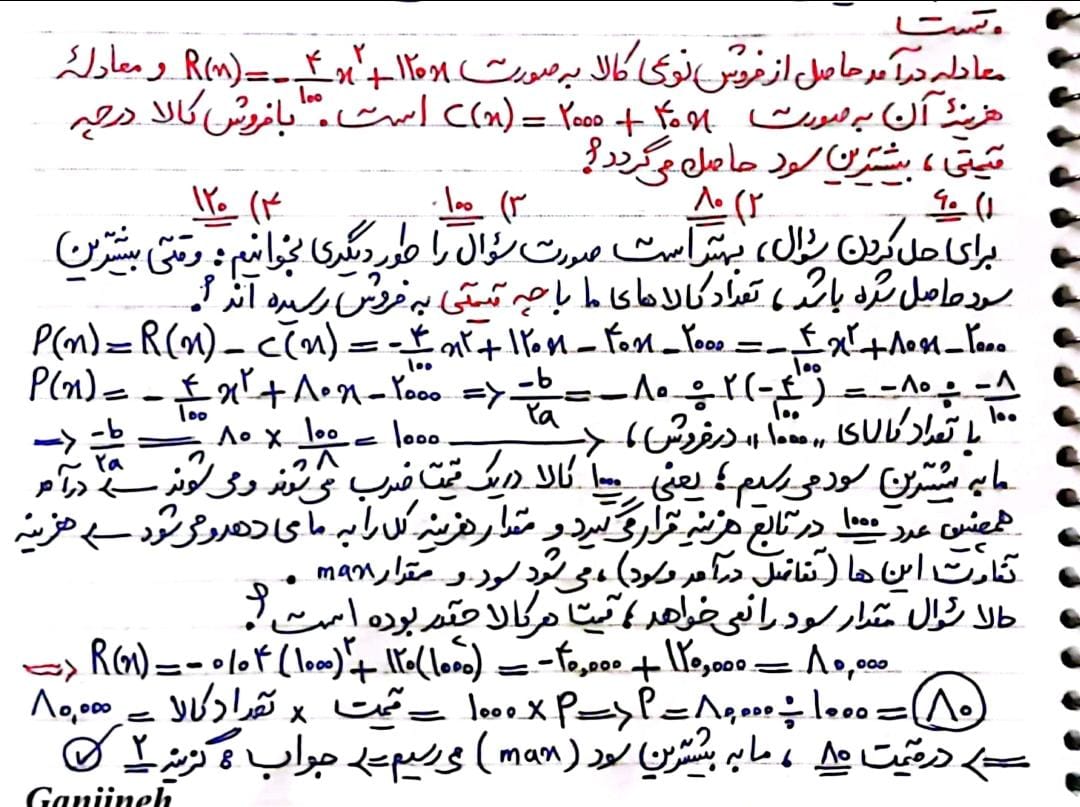 تست
معادله درآمد حاصل از فروش نوعی کالا به صورت R(x) = -۴/۱۰۰ x² + ۱۲۰x و معادلهٔ
هزینهٔ آن به صورت C(x) = ۲۰۰۰ + ۴۰x است. با فروش کالا در چه
قیمتی، بیشترین سود حاصل می‌گردد؟
۱) ۶۰ ۲) ۸۰ ۳) ۱۰۰ ۴) ۱۲۰
برای حل کردن سؤال، بهتر است صورت سؤال را طور دیگری بخوانیم: وقتی بیشترین
سود حاصل شده باشد، تعداد کالاهای ما با چه قیمتی به فروش رسیده اند؟
P(x) = R(x) - C(x) = -۴/۱۰۰ x² + ۱۲۰x - ۴۰x - ۲۰۰۰ = -۴/۱۰۰ x² + ۸۰x - ۲۰۰۰
P(x) = -۴/۱۰۰ x² + ۸۰x - ۲۰۰۰ => -b/۲a = -۸۰ ÷ ۲(-۴/۱۰۰) = -۸۰ ÷ -۸/۱۰۰
=> -b/۲a = ۸۰ × ۱۰۰/۸ = ۱۰۰۰ => با تعداد کالای "۱۰۰۰" در فروش،
ما به بیشترین سود می رسیم؛ یعنی ۱۰۰۰ کالا در یک قیمت ضرب می شوند و می شوند => درآمد
همچنین عدد ۱۰۰۰ در تابع هزینه قرار می گیرد و مقدار هزینه کل را به ما می دهد و می شود => هزینه
تفاوت این ها (تفاضل درآمد و سود)، می شود سود و مقدار max.
حالا سؤال مقدار سود را نمی خواهد، قیمت هر کالا چقدر بوده است؟
=> R(x) = -۰/۰۴(۱۰۰۰)² + ۱۲۰(۱۰۰۰) = -۴۰,۰۰۰ + ۱۲۰,۰۰۰ = ۸۰,۰۰۰
۸۰,۰۰۰ = تعداد کالا × قیمت = ۱۰۰۰ × P => P = ۸۰,۰۰۰ ÷ ۱۰۰۰ = ۸۰
=> در قیمت ۸۰، ما به بیشترین سود (max) می رسیم => جواب: گزینه ۲ ✓
Ganjineh